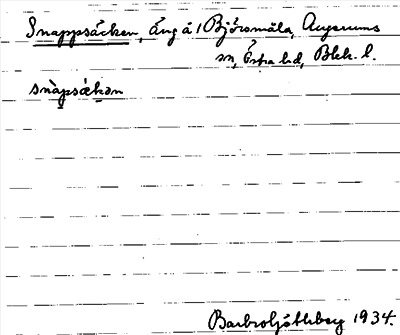 Snappsäcken, äng å 1 Björsmåla, Augerums
sn, Östra hd, Blek. l.
snàpsæ̀kən
Barbro Jöttberg 1934.